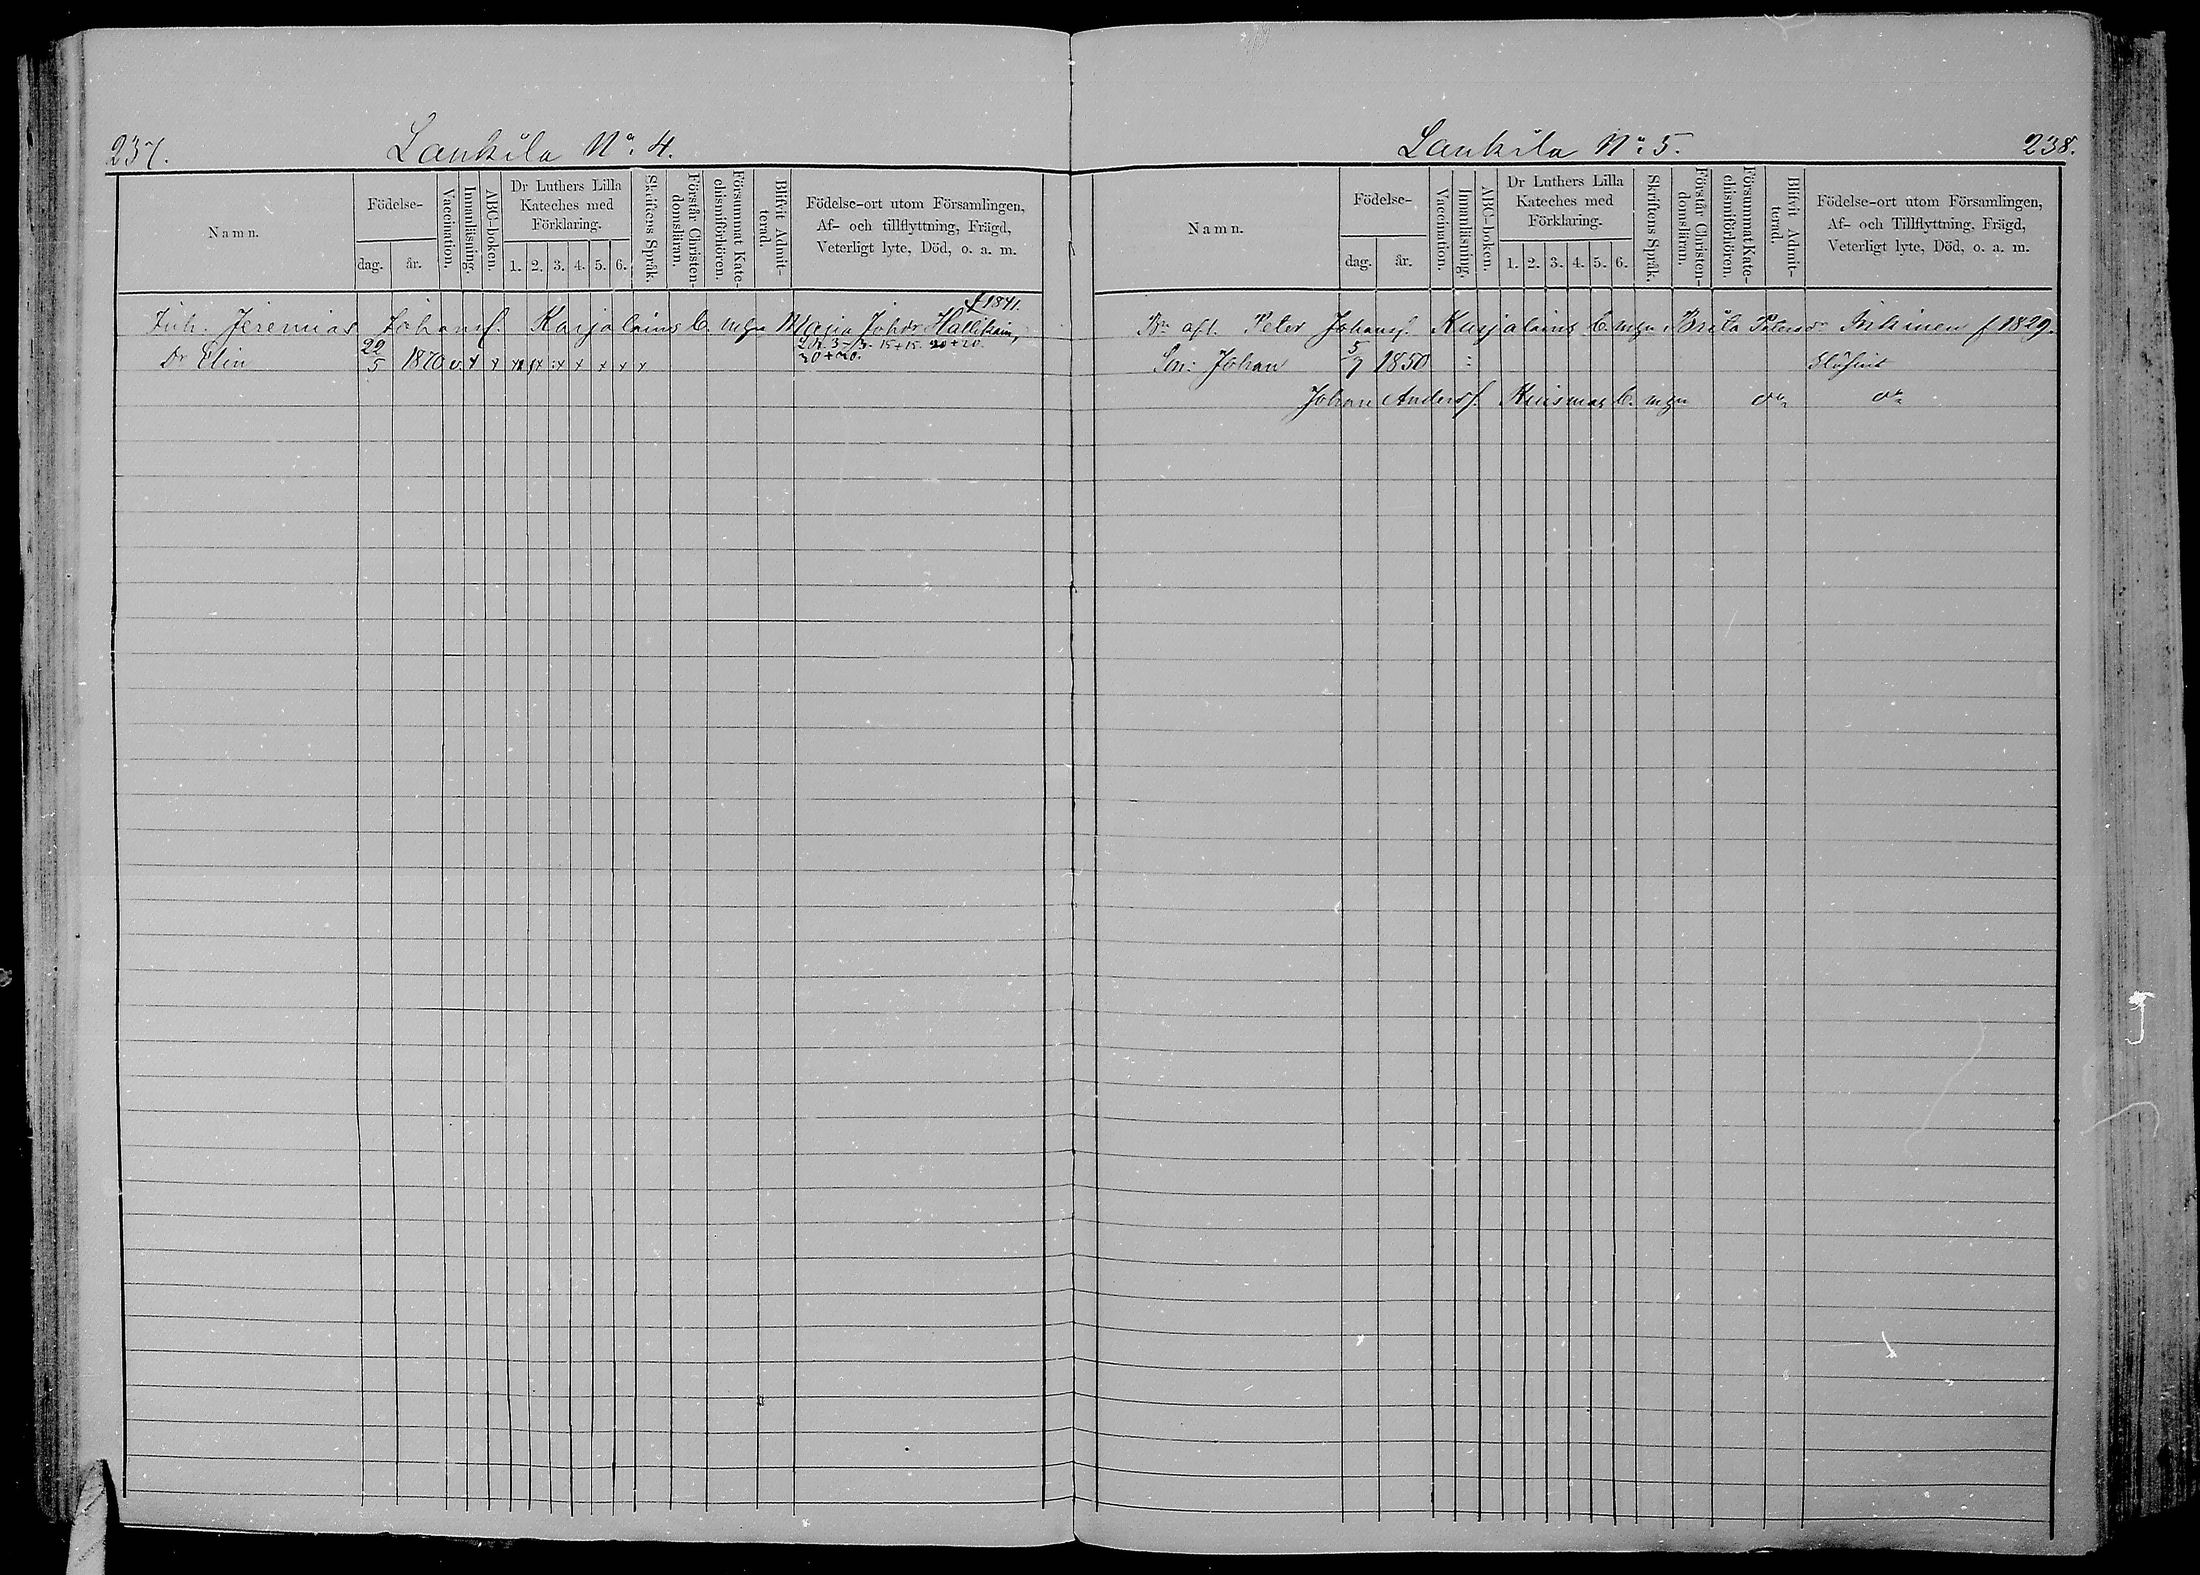 237.
Lankila No. 4.
Namn.
Födelse-
dag.
år.
Vaccination.
Innanläsning.
ABC-boken.
Dr Luthers Lilla
Kateches med
Förklaring.
1. 2. 3. 4. 5. 6.
Skriftens Språk.
Förstår Christen-
domsläran.
Försummat Kate-
chismiförhören.
Blifvit Admit-
terad.
Födelse-ort utom Församlingen,
Af- och tillflyttning, Frägd,
Veterligt lyte, Död, o. a. m.
f 1841.
Inh. Jeremias Johansf. Karjalains C. m Maria Johdr
Dr Elin 22/5 1870 v. x x x x x x x x
15+15. 20+20.
20+20.
Lankila No. 5.
238.
Namn.
Födelse-
dag.
år.
Vaccination.
Innanläsning.
ABC-boken.
Dr Luthers Lilla
Kateches med
Förklaring.
1. 2. 3. 4. 5. 6.
Skriftens Språk.
Förstår Christen-
domsläran.
Försummat Kate-
chismiförhören.
Blifvit Admit-
terad.
Födelse-ort utom Församlingen,
Af- och Tillflyttning, Frägd,
Veterligt lyte, Död, o. a. m.
Peter Johansf. Karjalains Brita Petersdr Inkinen f 1829.
Son: Johan 5/7 1850
Johan Andersf. Kuismas